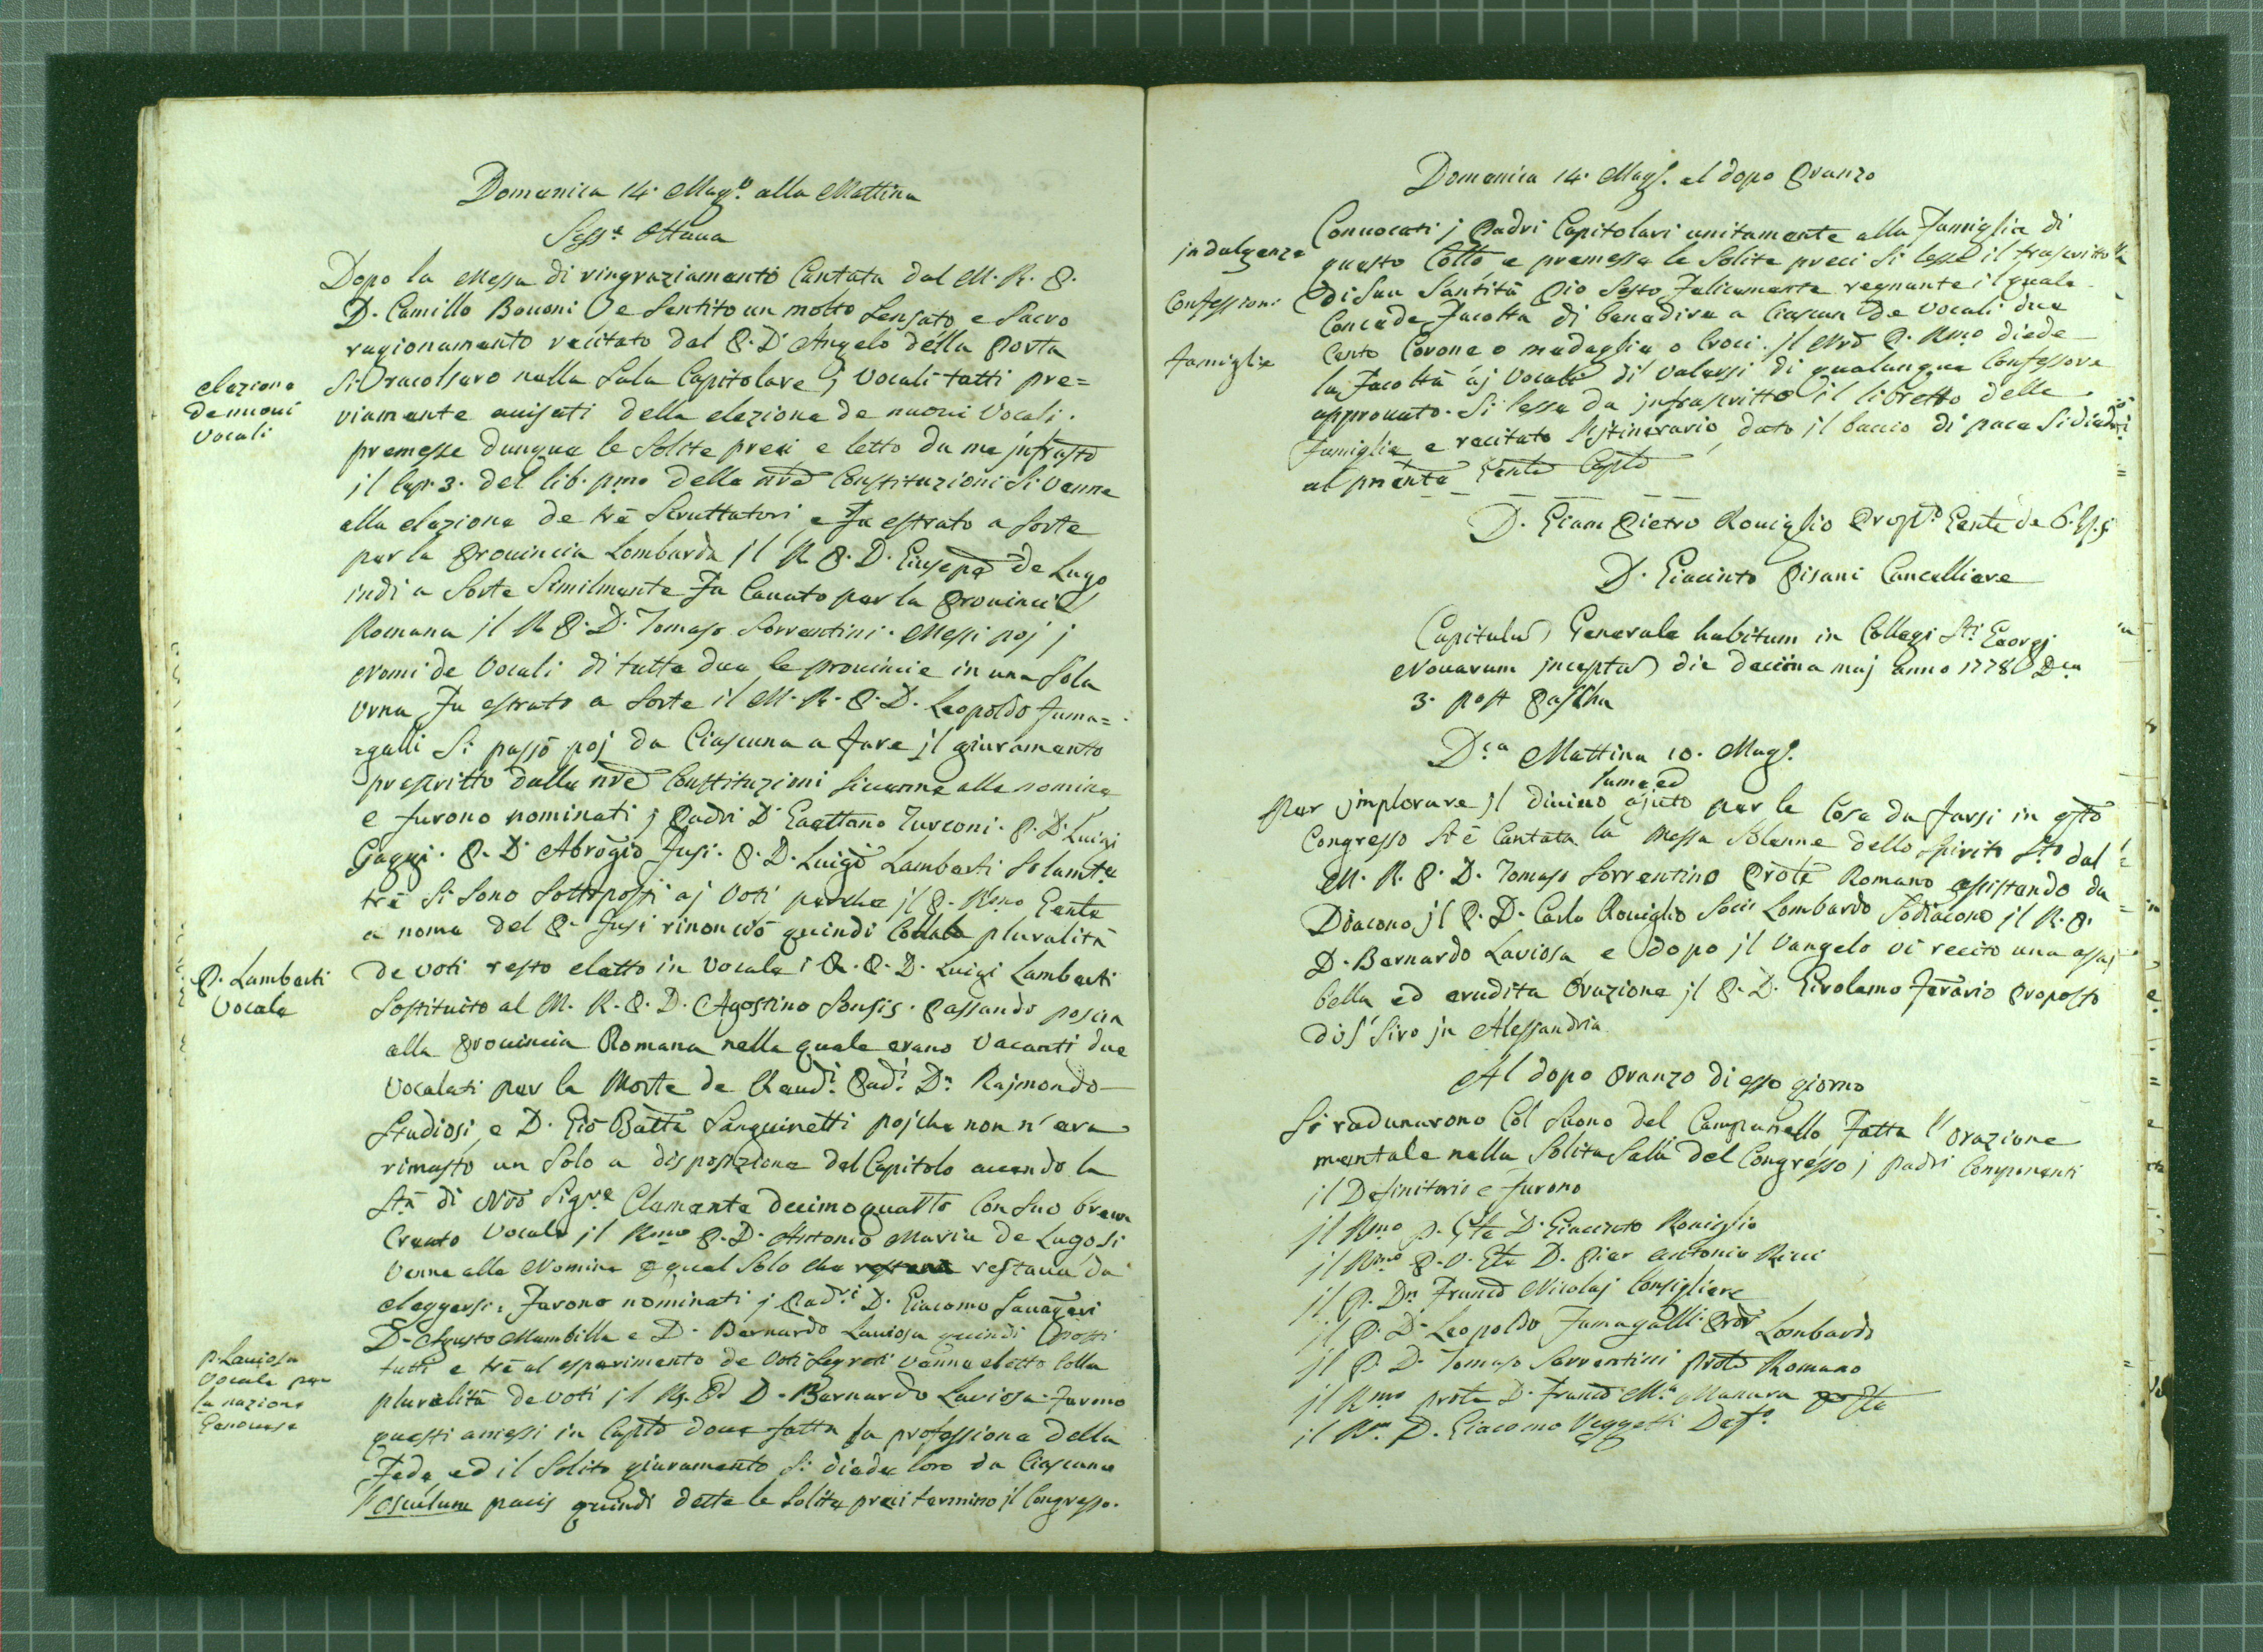 Domenica 14. Magº. alla Mattina
Sessᵉ. Ottava
Dopo la Messa di ringraziamento Cantata dal M. R. P.
D. Camillo Bovoni e Sentito un molto Sensato e Sacro
ragionamento recitato dal P. D. Angelo della Porta
Si racolsero nella Sala Capitolare j Vocali tutti pre=
elezione
de nuovi
Vocali
viamente avisati della elezione de nuovi Vocali.
premesse dunque le Solite preci e letto da me jnfrastõ
jl Cap. 3. del lib. pmo delle nrẽ Constituzioni Si venne
alla elezione de trè Scruttatori e Fu estrato a Sorte
per la Provincia Lombarda jl R. P. D. Giusepe de Lugo
indi a Sorte Similmente Fu Cavato per la Provincia
Romana jl R. P. D. Tomaso Sorrentini. Messi poj j
Nomi de Vocali di tutte due le provincie in una Sola
Urna Fu estrato a Sorte il M. R. P. D. Leopoldo Fuma=
=galli Si passò poj da Ciascuna a fare jl giuramento
prescritto dalle nrẽ Constituzioni Si venne alla nomina
e furono nominati j Padri D. Gaettano Turconi. P. D. Luigi
Gaggi. P. D. Abrogio Fusi. P. D. Luigi Lamberti Solamte
trè Si Sono Sottoposti aj Voti perche jl P. Rmo Genle
a nome del P. Fusi rinonciò quindi Colla pluralità
P. Lamberti
Vocale
de voti resto eletto in Vocale i R. P. D. Luigi Lamberti
Sostituito al M. R. P. D. Agostino Sonsis. Passando poscia
alla Provincia Romana nella quale erano Vacanti due
Vocalati per la Morte de Revdi. Padi. Dn. Rajmondo
Studiosi, e D. Gio Batta Sanguinetti pojche non n'era
rimasto un Solo a disposizione del Capitolo avendo la
Stà di Nrõ Sigre Clemente decimoquarto Con Suo breve
Creato Vocale jl Rmo P. D. Antonio Maria de Lugo Si
venne alla Nomina quel Solo che restava da
eleggersi. Furono nominati j Padri D. Giacomo
D. Agusto Mambilla e D. Bernardo Laviosa quindi posti
P. Laviosa
Vocale per
la nazione
Genovese
tutti e trè al esperimento de Voti Segreti venne eletto Colla
pluralità de voti jl R. P. D. Bernardo Laviosa. Furono
questi amessi in Caplõ dove fatta la professione della
Fede ed il Solito giuramento Si diede loro da Ciascuno
l'osculum pacis quindi dette le Solite preci termino jl Congresso.
Domenica 14. Magº. al dopo Pranzo
Convocati j Padri Capitolari unitamente alla Famiglia di
jndulgenze
questo Collº e premesse le Solite preci Si lesse il trascritto
di Sua Santità Pio Sesto Felicemente regnante il quale
Confessioni
Concede Facolta di benedire a Ciascun de Vocali due
Cento Corone o medaglie o Croci. jl Nrõ P. Rmo diede
famiglie
la Facoltà aj Vocali di Valersi di qualunque Confessore
approvato. Si lesse da jnfrascritto il libretto delle
Famiglie e recitato l'jtinerario, dato jl baccio di pace Si diede
al prẽnte Genle Caplõ
D. Giam Pietro Roviglio Genle
D. Giacinto Pisani Cancelliere
Capitulũ Generale habitum in Collegi Sti Georgj
Novarum jnceptũ die decima maj anno 1778 Dca
3. post Pascha
Dca Mattina 10. Magº.
lume ed
Per jmplorare jl divino ajuto per le Cose da farsi in qsto
Congresso Si è Cantata la Messa Solenne dello Spirito Sto dal
M. R. P. D. Tomaso Sorrentino Prole Romano assistendo da
Diacono jl P. D. Carlo Roviglio Socio Lombardo Sodiacono jl R. P.
D. Bernardo Laviosa e dopo jl Vangelo vi recito una assaj
bella ed erudita Orazione jl P. D. Girolamo Ferario Proposto
di S. Siro jn Alessandria
Al dopo Pranzo di esso giorno
Si radunarono Col Suono del Campanello Fatta l'orazione
mentale nella Solita Sala del Congresso j padri Componenti
il Definitorio e furono
jl Rmo P. Gle D. Giacinto Roviglio
jl Rmo P. V. Gle D. Pier Antonio Ricci
jl P. Dn Francõ Nicolaj Consigliere
jl P. D. Leopoldo Fumagalli Lombardo
jl P. D. Tomaso Sorrentini Prole Romano
jl Rmo D. Francõ Ma. Manara
il Rm. P. Giacomo Veggetti Defº.